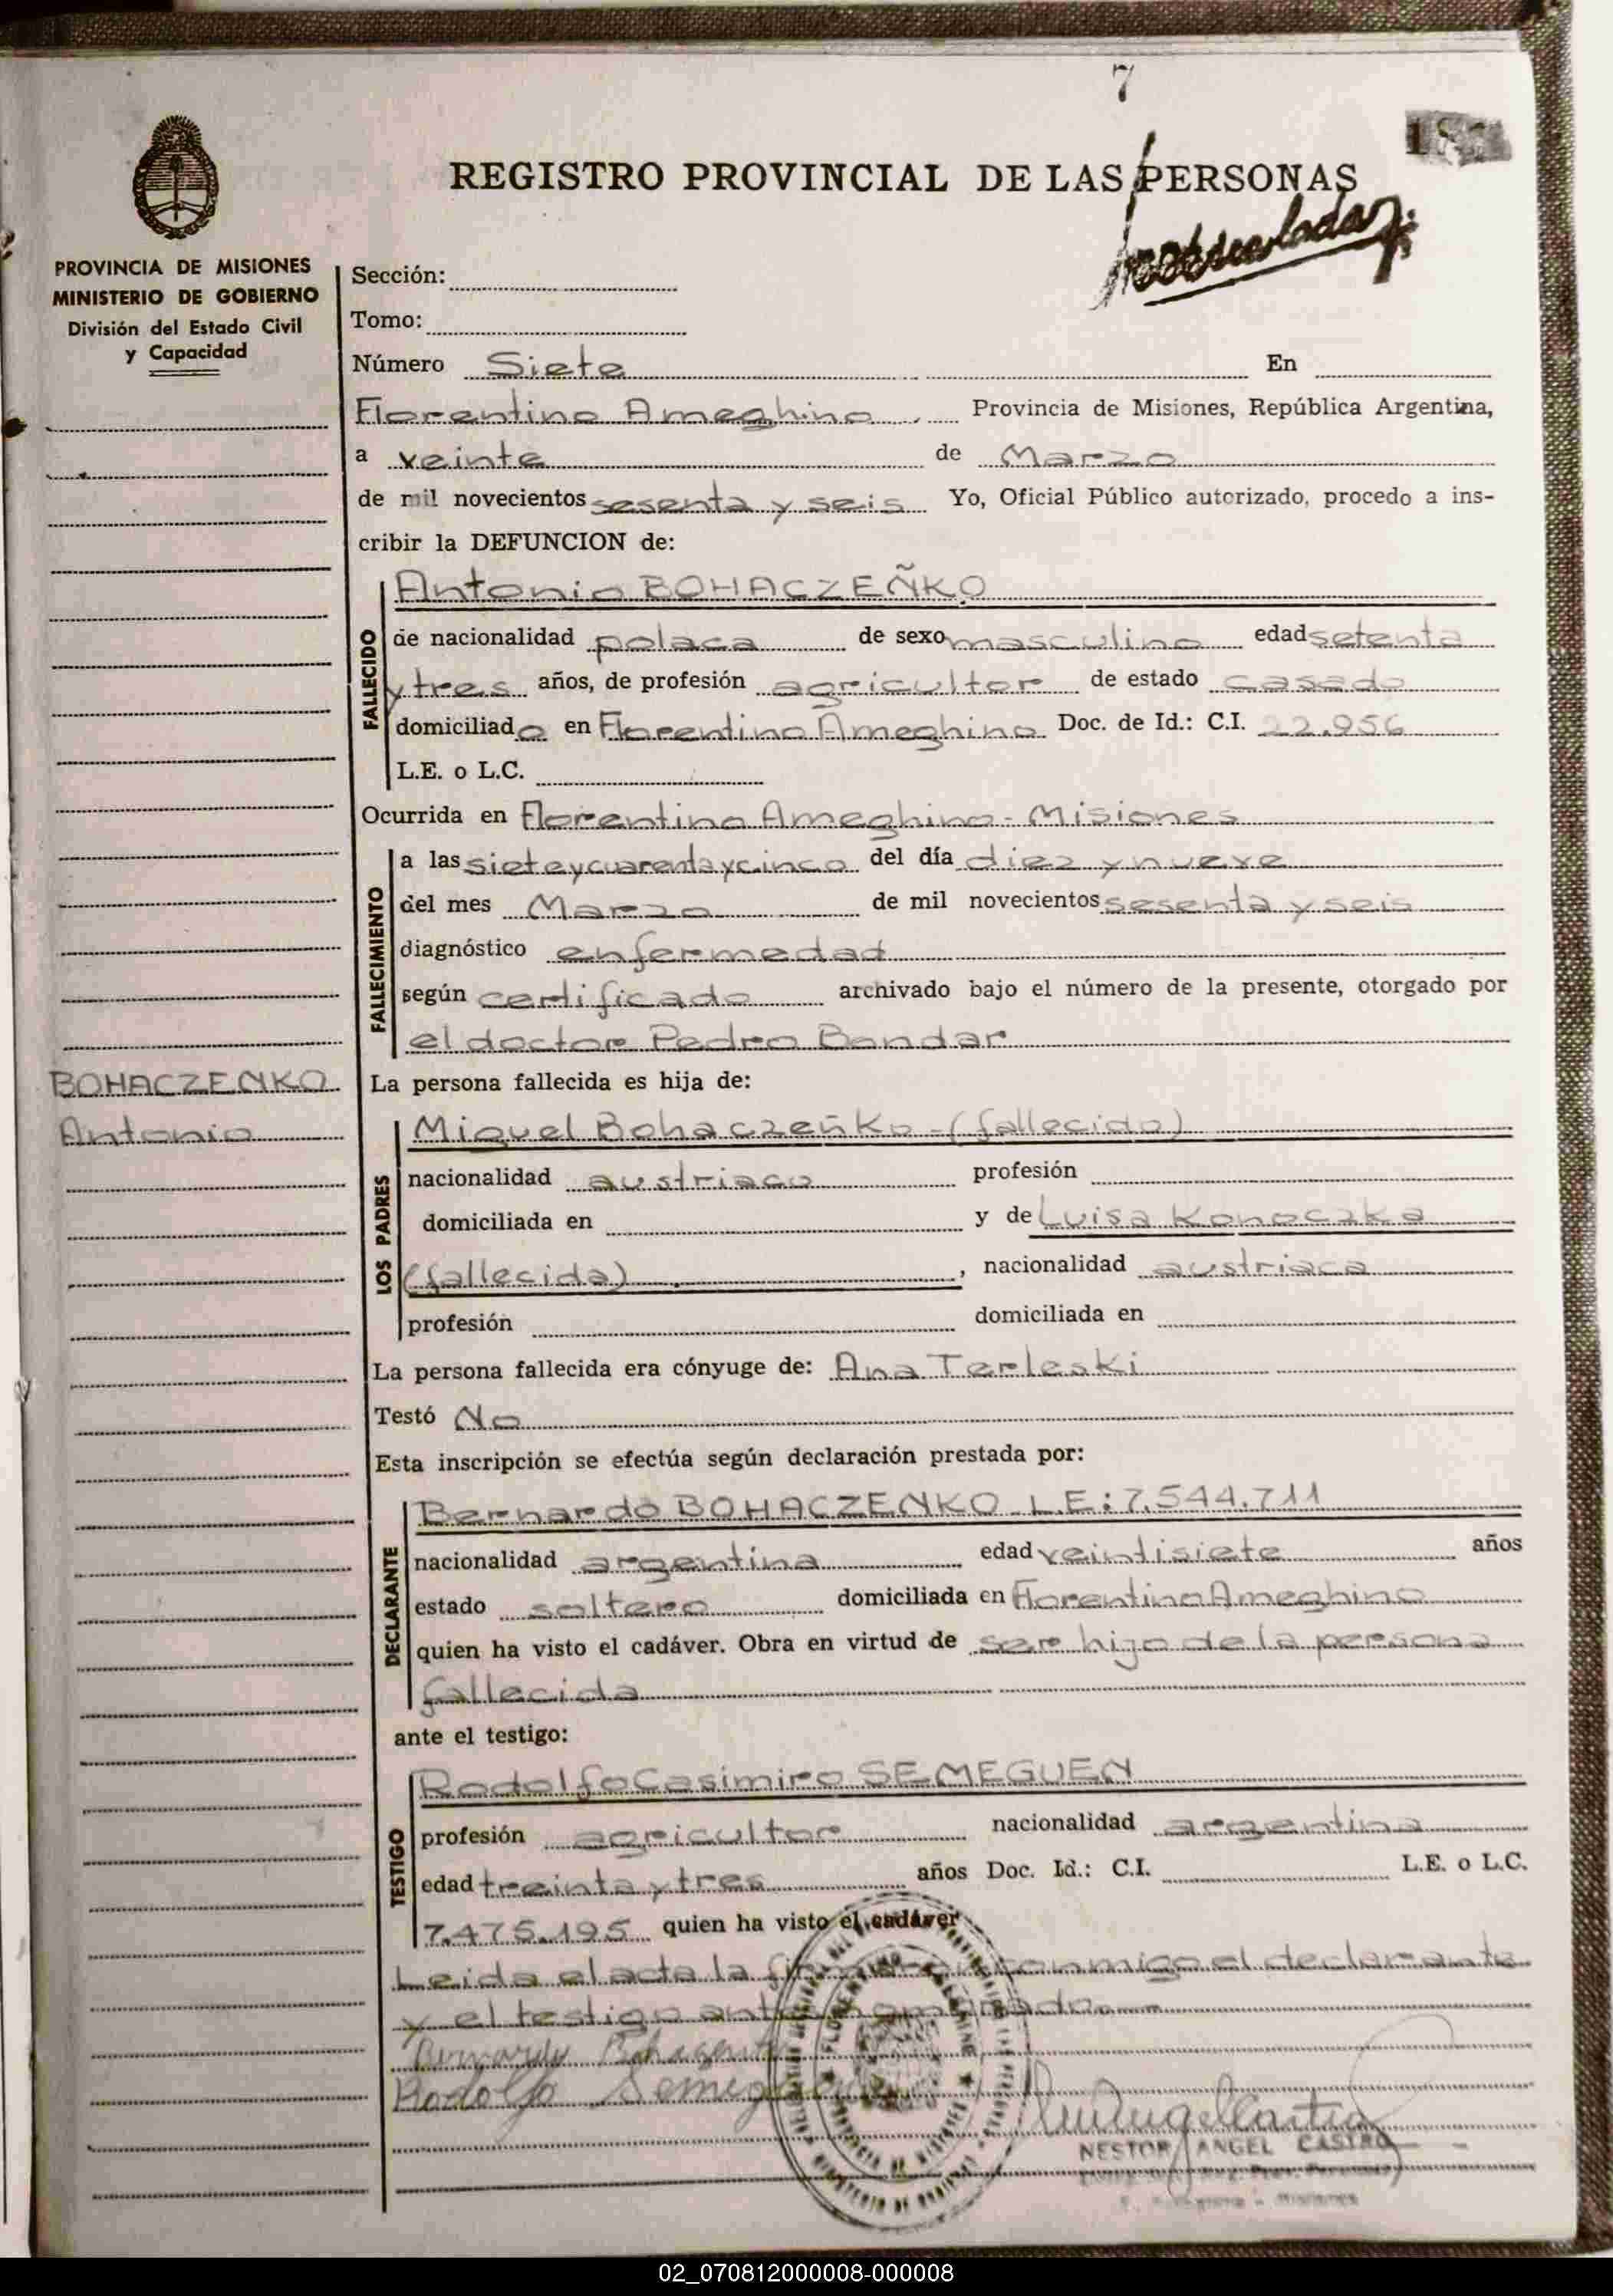 7
REGISTRO PROVINCIAL DE LAS PERSONAS
PROVINCIA DE MISIONES
MINISTERIO DE GOBIERNO
División del Estado Civil
y Capacidad
Sección:
Tomo:
Número Siete En
Florentino Ameghino Provincia de Misiones, República Argentina,
a veinte de Marzo
de mil novecientos sesenta y seis Yo, Oficial Público autorizado, procedo a ins-
cribir la DEFUNCION de:
FALLECIDO
Antonio BOHACZEÑKO
de nacionalidad polaca de sexo masculino edad setenta
y tres años, de profesión agricultor de estado casado
domiciliado en Florentino Ameghino Doc. de Id.: C.I. 22.956
L.E. o L.C.
Ocurrida en Florentino Ameghino - Misiones
FALLECIMIENTO
a las siete y cuarenta y cinco del día diez y nueve
del mes Marzo de mil novecientos sesenta y seis
diagnóstico enfermedad
según certificado archivado bajo el número de la presente, otorgado por
el doctor Pedro Bondar
BOHACZENKO
Antonio
La persona fallecida es hija de:
LOS PADRES
Miguel Bohaczeñko - (fallecido)
nacionalidad austriaco profesión
domiciliada en y de Luisa Konoczka
(fallecida), nacionalidad austriaca
profesión domiciliada en
La persona fallecida era cónyuge de: Ana Terleski
Testó No
Esta inscripción se efectúa según declaración prestada por:
DECLARANTE
Bernardo BOHACZENKO L.E: 7.544.711
nacionalidad argentina edad veintisiete años
estado soltero domiciliada en Florentino Ameghino
quien ha visto el cadáver. Obra en virtud de ser hijo de la persona
fallecida
ante el testigo:
TESTIGO
Rodolfo Casimiro SEMEGUEN
profesión agricultor nacionalidad argentina
edad treinta y tres años Doc. Id.: C.I. L.E. o L.C.
7.475.195 quien ha visto el cadáver
Leida el acta la conmigo el declarante
y el testigo
Rodolfo
NESTOR ANGEL CASTRO
02_070812000008-000008